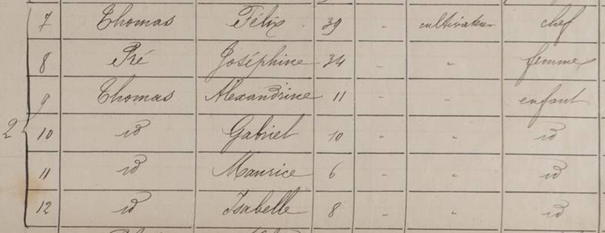 7 Thomas Félix 39 - cultivateur chef
8 Pré Joséphine 34 - " femme
9 Thomas Alexandrine 11 - " enfant
2 10 id Gabriel 10 - " id
11 id Maurice 6 - " id
12 id Isabelle 8 - " id